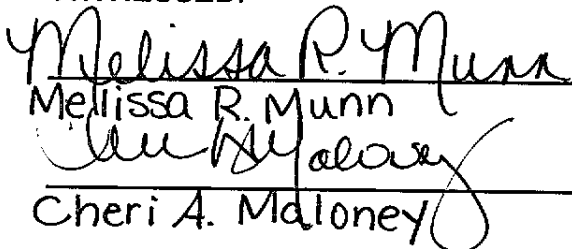 Melissa R. Munn
Mellissa R. Munn
Cheri A. Maloney
Cheri A. Maloney